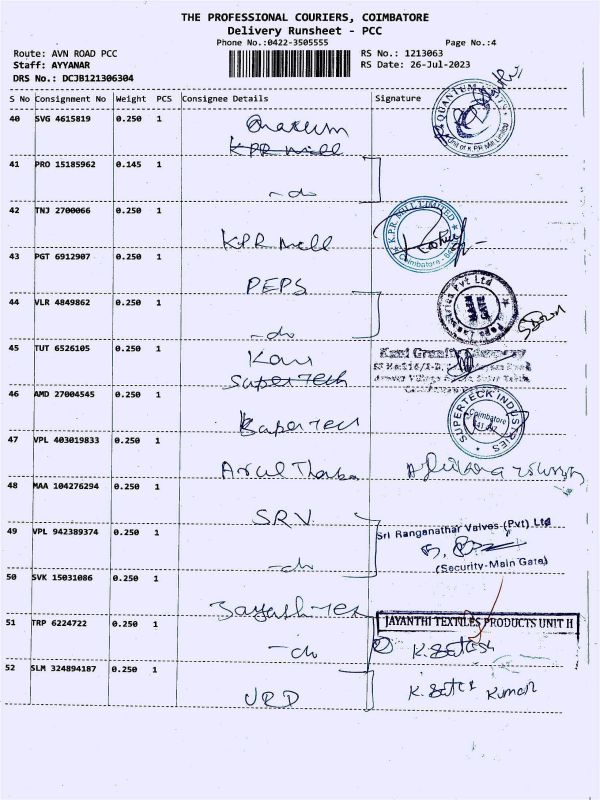 THE PROFESSIONAL COURIERS, COIMBATORE
Delivery Runsheet - PCC
Phone No.:0422-3505555 Page No.:4
Route: AVN ROAD PCC RS No.: 1213063
Staff: AYYANAR RS Date: 26-Jul-2023
DRS No.: DCJB121306304
S No Consignment No Weight PCS Consignee Details Signature
QUANTUM KNITS
A Unit of K P R Mill Limited
40 SVG 4615819 0.250 1
KPR Mill
41 PRO 15185962 0.145 1
-do
42 TNJ 2700066 0.250 1
K.P.R. MILL LIMITED
Coimbatore
KPR Mill
43 PGT 6912907 0.250 1
PEPS
44 VLR 4849862 0.250 1
Pvt Ltd
MAIN GATE
-do
45 TUT 6526105 0.250 1
Super Tech
46 AMD 27004545 0.250 1
SUPERTECK INDUSTRIES
Coimbatore
47 VPL 403019833 0.250 1
Arul
48 MAA 104276294 0.250 1
SRV
49 VPL 942389374 0.250 1
Sri Ranganathar Valves (Pvt) Ltd
-do
(Security-Main Gate)
50 SVK 15031086 0.250 1
51 TRP 6224722 0.250 1
JAYANTHI TEXTILES PRODUCTS UNIT II
-do
K. Satesh
52 SLM 324894187 0.250 1
K. Kumar
URD